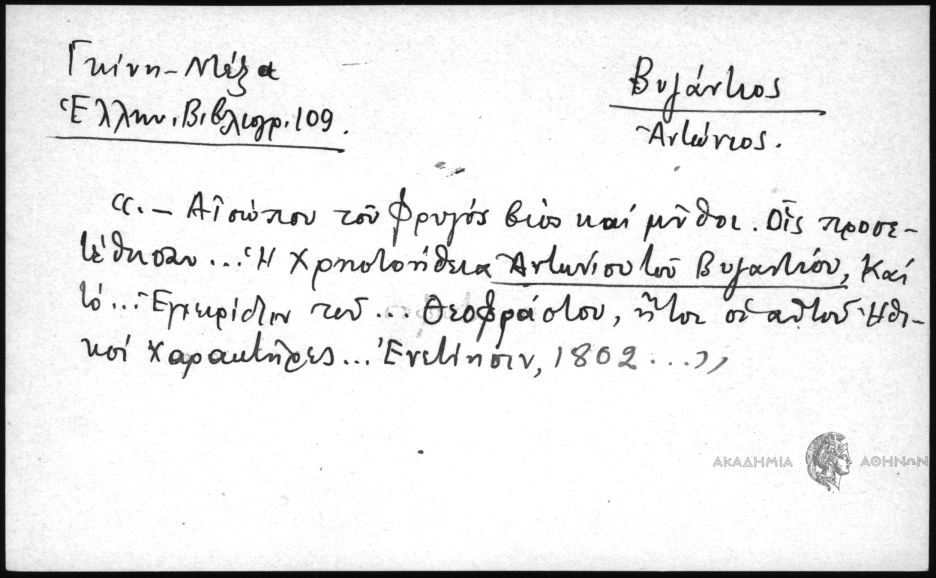 Γκίνη-Μέξα
Ἑλλην. Βιβλιογρ. 109.
Βυζάντιος
Ἀντώνιος.
«.– Αἰσώπου τοῦ Φρυγός βίος καί μῦθοι. Οἷς προσε-
τέθησαν ... Ἡ Χρηστοήθεια Ἀντωνίου τοῦ Βυζαντίου, καί
τό ... Ἐγχειρίδιον τοῦ ... Θεοφράστου, ἤτοι οἱ αὐτοῦ Ἠθι-
κοί Χαρακτῆρες ... Ἐνετίησιν, 1802 ...»
ΑΚΑΔΗΜΙΑ ΑΘΗΝΩΝ